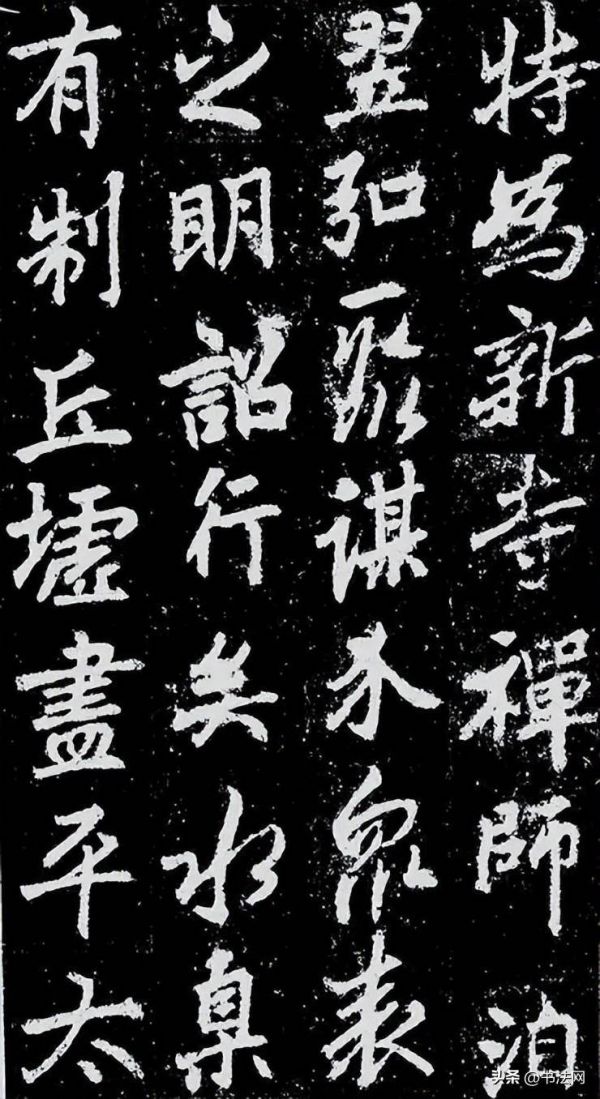 特為新寺禪師洎
翌弘聚謀介衆表
之明詔行矣水臬
有制丘墟盡平太
头条 @书法网